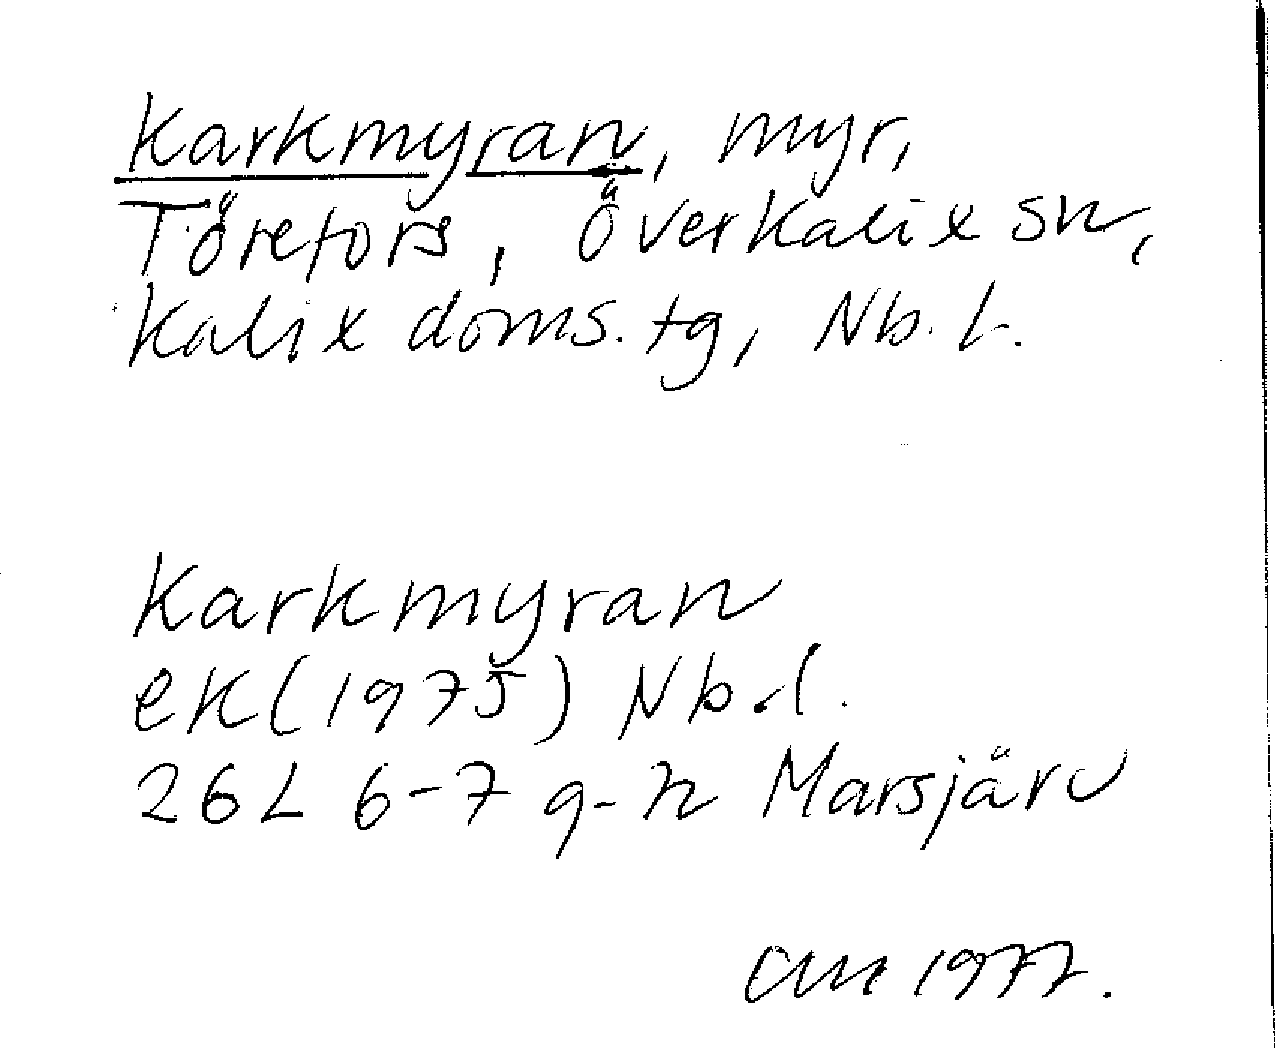 Karkmyran, myr,
Törefors, Överkalix sn,
Kalix doms.tg, Nb.l.
Karkmyran
ek(1975) Nb.l.
26L 6-7 g-h Marsjärv
1977.